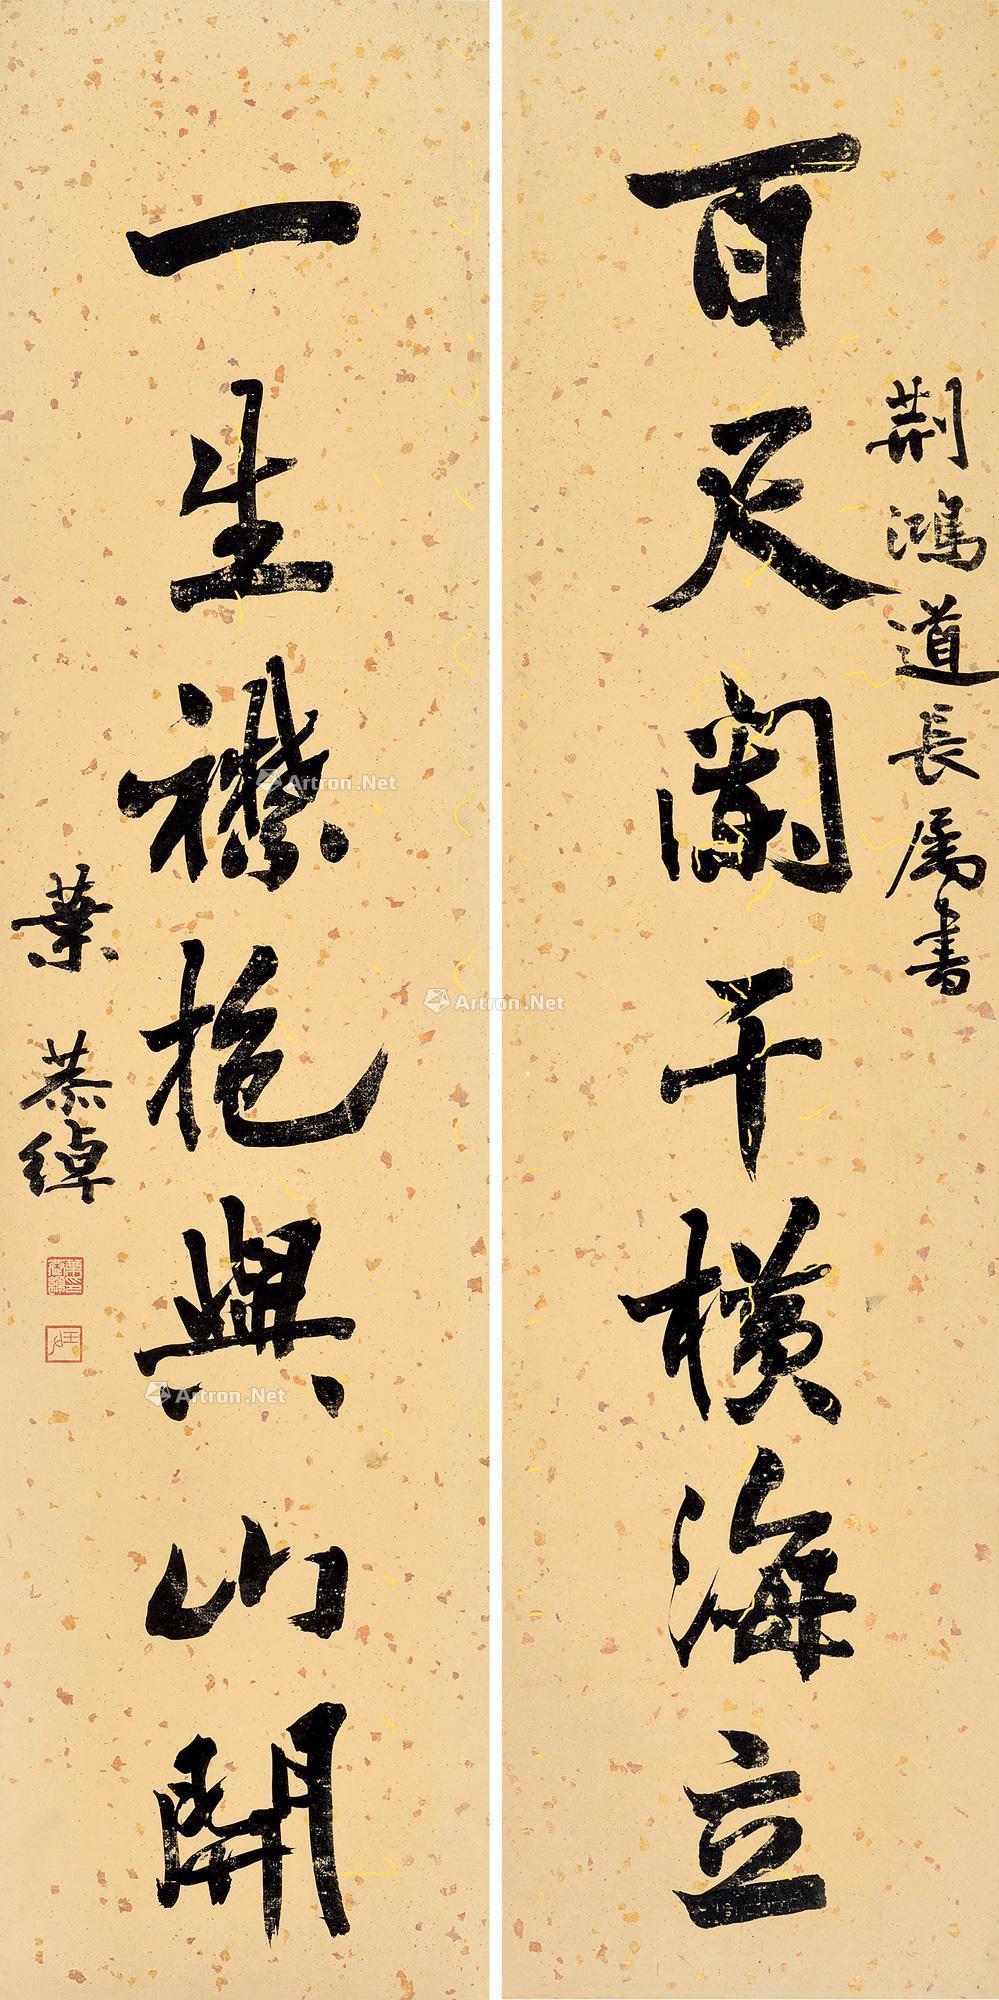 百尺闌干橫海立
荆鴻道長属書
一生襟抱與山開
葉恭綽
Artron.Net
Artron.Net
Artron.Net